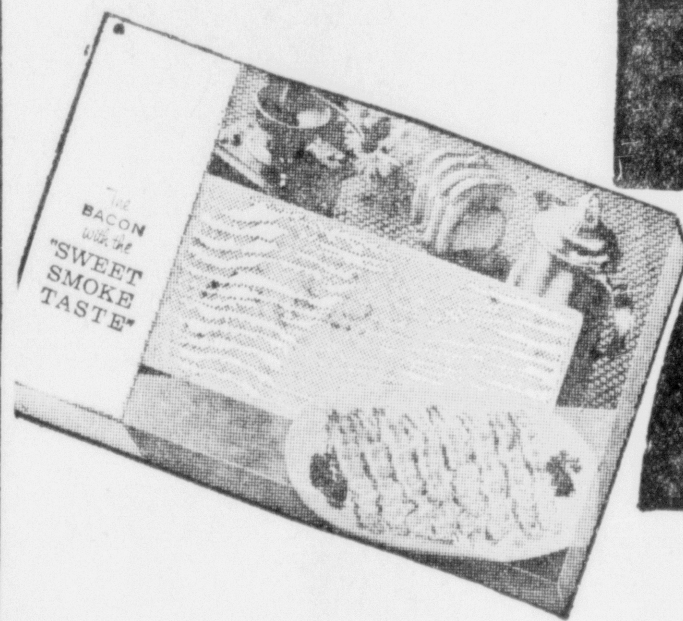 The
BACON
with the
"SWEET
SMOKE
TASTE"